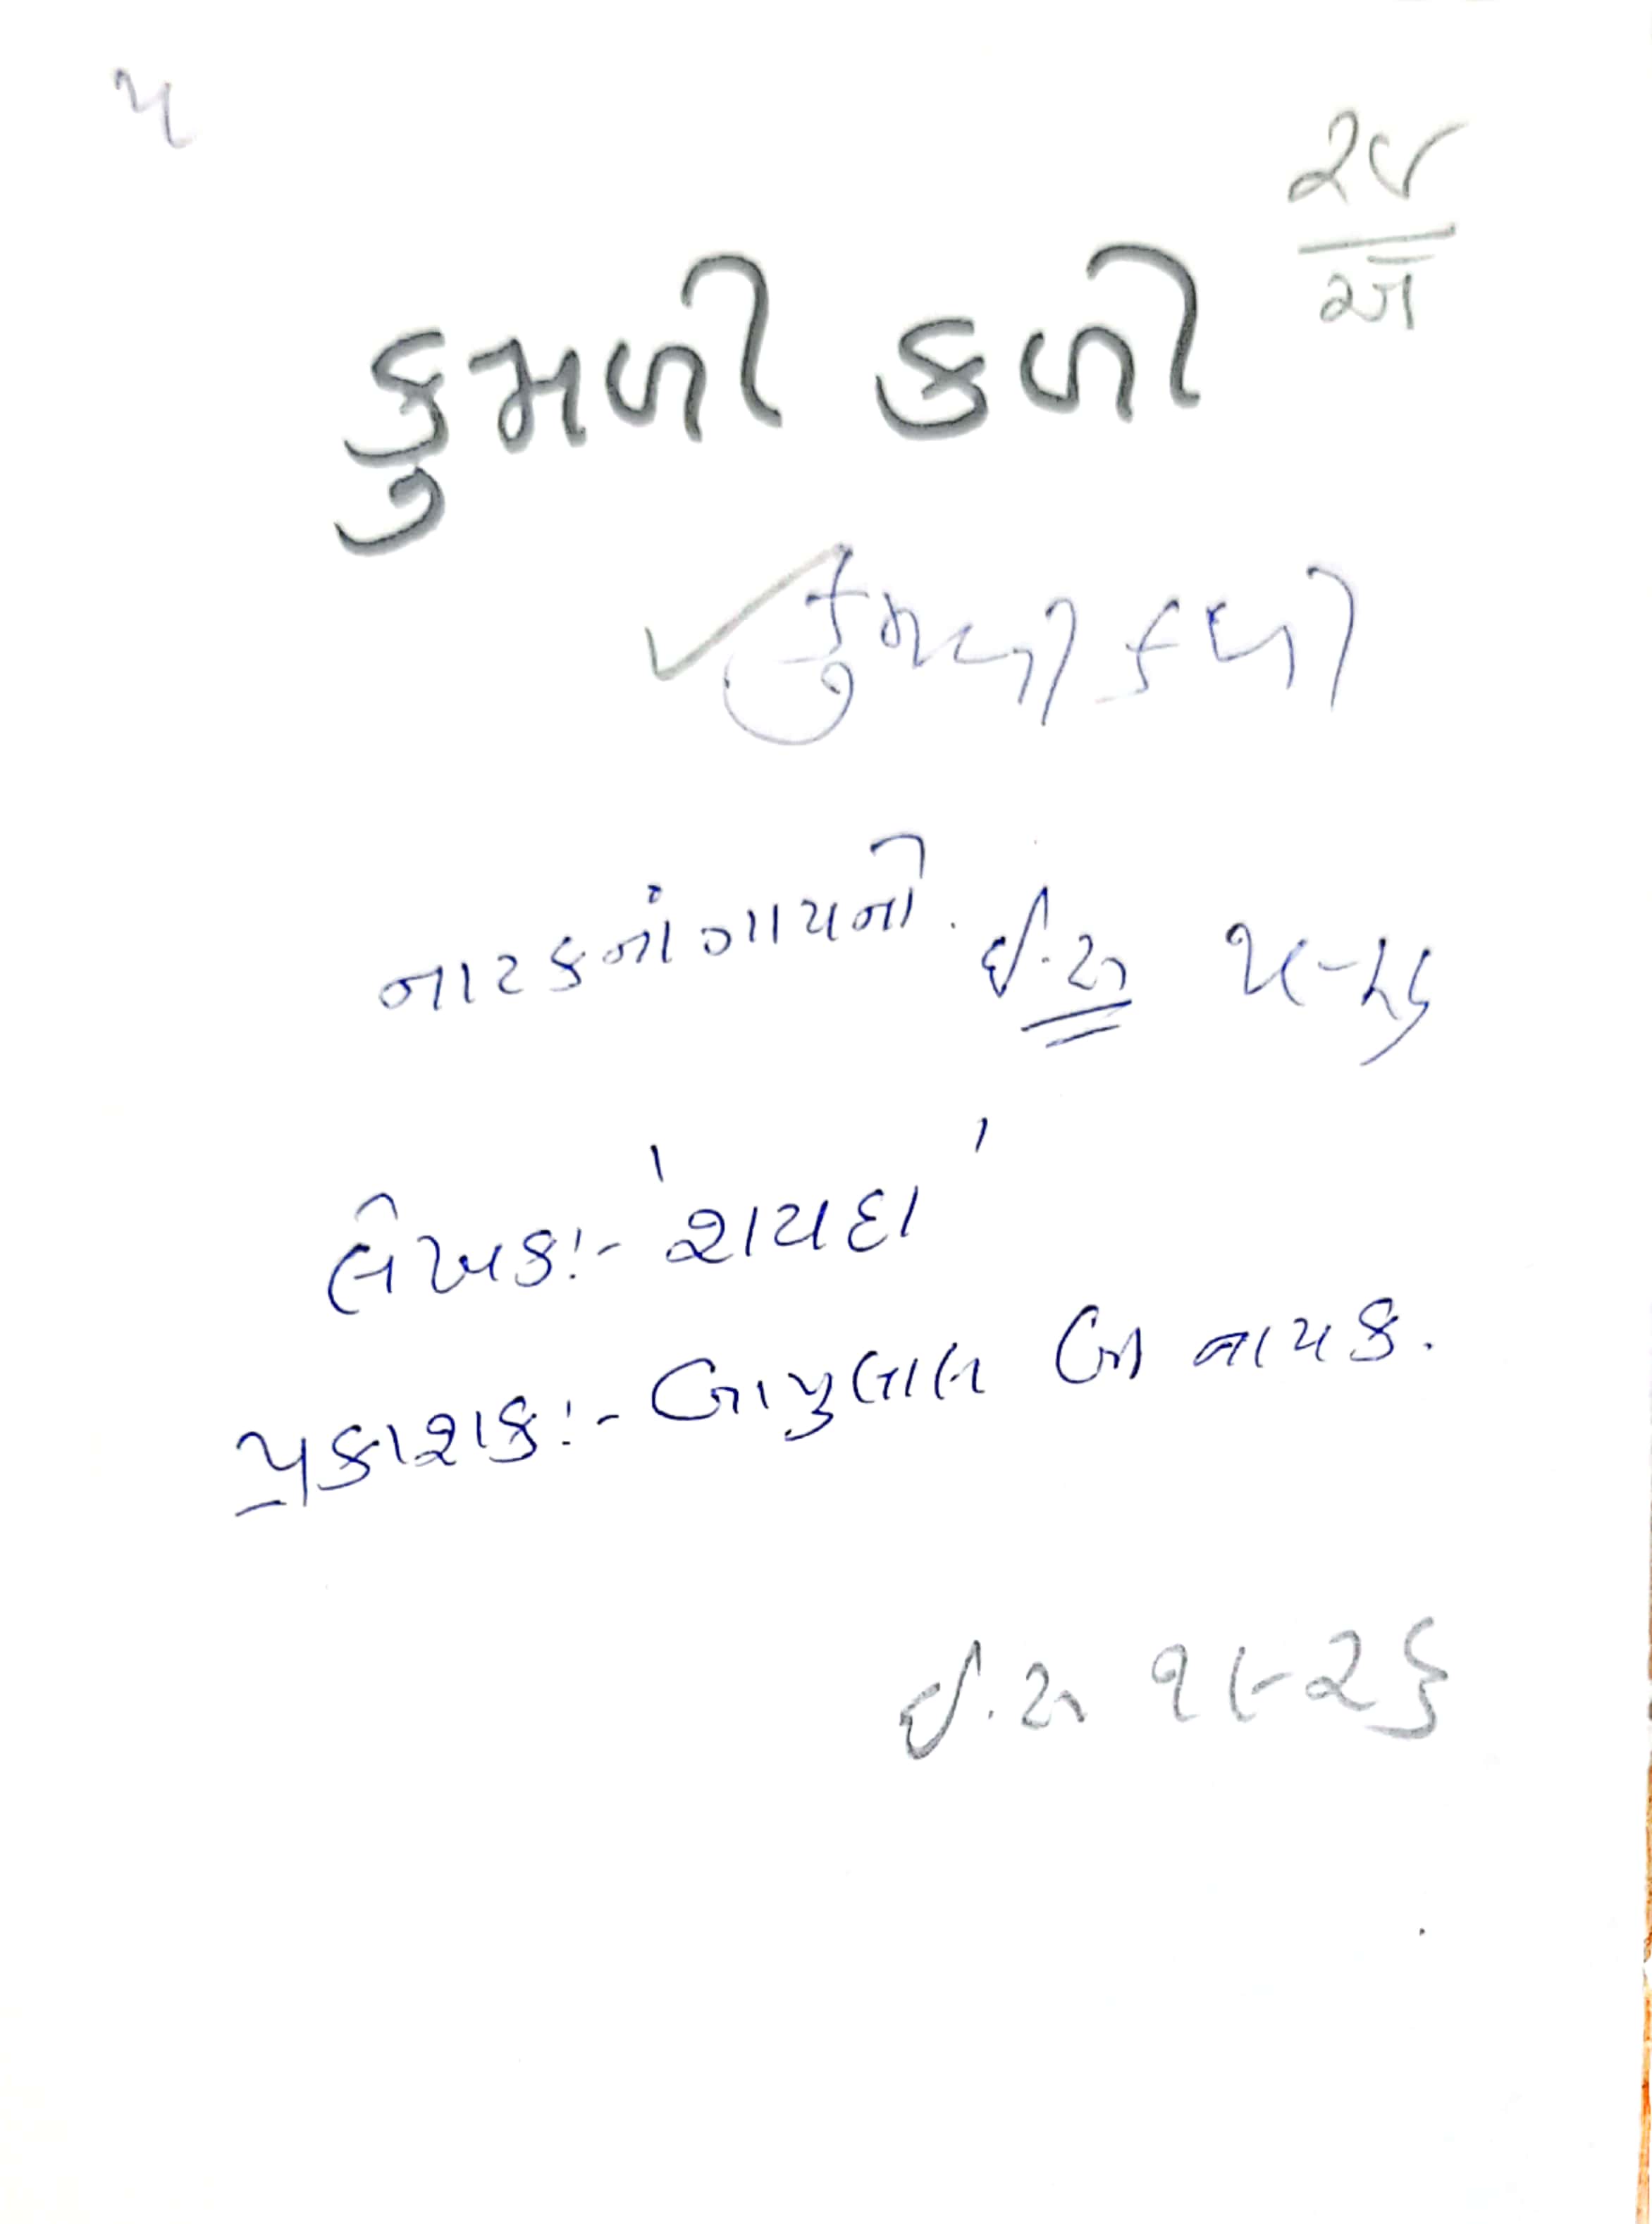 ૫
૨૪
અ
કુમળી કળી
કુમળી કળી
નાટકનાં ગાયનો. ઈ.સ ૧૯૨૬
લેખક:- 'શાયદા'
પ્રકાશક:- બાપુલાલ બી નાયક.
ઈ.સ ૧૯૨૬